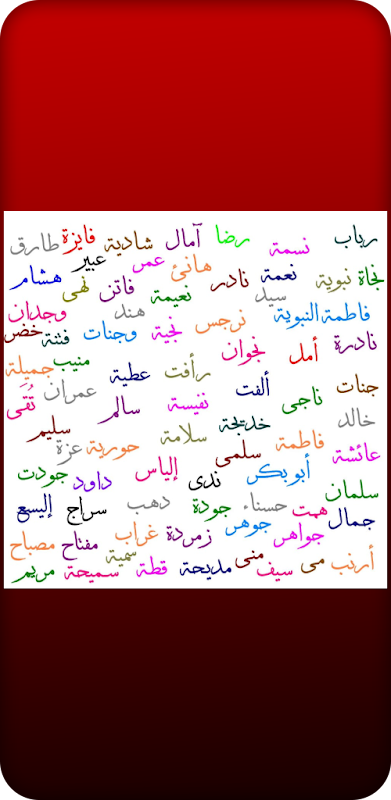 رباب نسمة رضا آمال شادية فايزة طارق
نجاة نبوية نعمة نادر هانئ عمر عبير هشام
فاطمة النبوية سيد نعيمة فاتن نهى
نادرة نرجس نجية وجنات هند فتنة وجدان خضر
أمل نجوان رأفت عطية منيب جميلة
جنات ألفت نفيسة سالم عمران تُقَى
خالد ناجى خديجة سلامة سليم
عائشة فاطمة سلمى حورية عزة
سلمان أبو بكر ندى إلياس داود جودت
جمال همت حسناء جودة دهب سراج إليسع
جواهر جوهر زمردة غراب مفتاح مصباح
أرنب مى منى سيف مديحة قطة سمية سميحة مريم